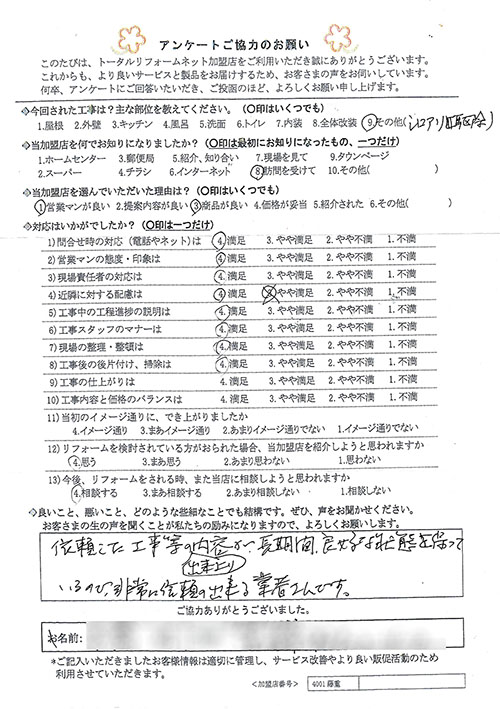 アンケートご協力のお願い
このたびは、トータルリフォームネット加盟店をご利用いただき誠にありがとうございます。
これからも、より良いサービスと製品をお届けするため、お客さまの声をお伺いしています。
何卒、アンケートにご回答いただき、ご投函のほど、よろしくお願い申し上げます。
◇今回された工事は?主な部位を教えてください。(〇印はいくつでも)
1.屋根 2.外壁 3.キッチン 4.風呂 5.洗面 6.トイレ 7.内装 8.全体改装 9.その他(シロアリ駆除)
◇当加盟店を何でお知りになりましたか?(〇印は最初にお知りになったもの、一つだけ)
1.ホームセンター 3.郵便局 5.紹介、知り合い 7.現場を見て 9.タウンページ
2.スーパー 4.チラシ 6.インターネット 8.訪問を受けて 10.その他( )
◇当加盟店を選んでいただいた理由は?(〇印はいくつでも)
1.営業マンが良い 2.提案内容が良い 3.商品が良い 4.価格が妥当 5.紹介された 6.その他( )
◇対応はいかがでしたか?(〇印は一つだけ)
1)問合せ時の対応(電話やネット)は 4.満足 3.やや満足 2.やや不満 1.不満
2)営業マンの態度・印象は 4.満足 3.やや満足 2.やや不満 1.不満
3)現場責任者の対応は 4.満足 3.やや満足 2.やや不満 1.不満
4)近隣に対する配慮は 4.満足 3.やや満足 2.やや不満 1.不満
5)工事中の工程進捗の説明は 4.満足 3.やや満足 2.やや不満 1.不満
6)工事スタッフのマナーは 4.満足 3.やや満足 2.やや不満 1.不満
7)現場の整理・整頓は 4.満足 3.やや満足 2.やや不満 1.不満
8)工事後の後片付け、掃除は 4.満足 3.やや満足 2.やや不満 1.不満
9)工事の仕上がりは 4.満足 3.やや満足 2.やや不満 1.不満
10)工事内容と価格のバランスは 4.満足 3.やや満足 2.やや不満 1.不満
11)当初のイメージ通りに、でき上がりましたか
4.イメージ通り 3.まあイメージ通り 2.あまりイメージ通りでない 1.イメージ通りでない
12)リフォームを検討されている方がおられた場合、当加盟店を紹介しようと思われますか
4.思う 3.まあ思う 2.あまり思わない 1.思わない
13)今後、リフォームをされる時、また当店に相談しようと思われますか
4.相談する 3.まあ相談する 2.あまり相談しない 1.相談しない
◇良いこと、悪いこと、どのような些細なことでも結構です。ぜひ、声をお聞かせください。
お客さまの生の声を聞くことが私たちの励みになりますので、よろしくお願いします。
依頼した工事等の内容が、長期間、良好な状態を保って
出来上り
いるので、非常に信頼の出来る業者さんです。
ご協力ありがとうございました。
お名前:
*ご記入いただきましたお客様情報は適切に管理し、サービス改善やより良い販促活動のため
利用させていただきます。
<加盟店番号> 4001藤重